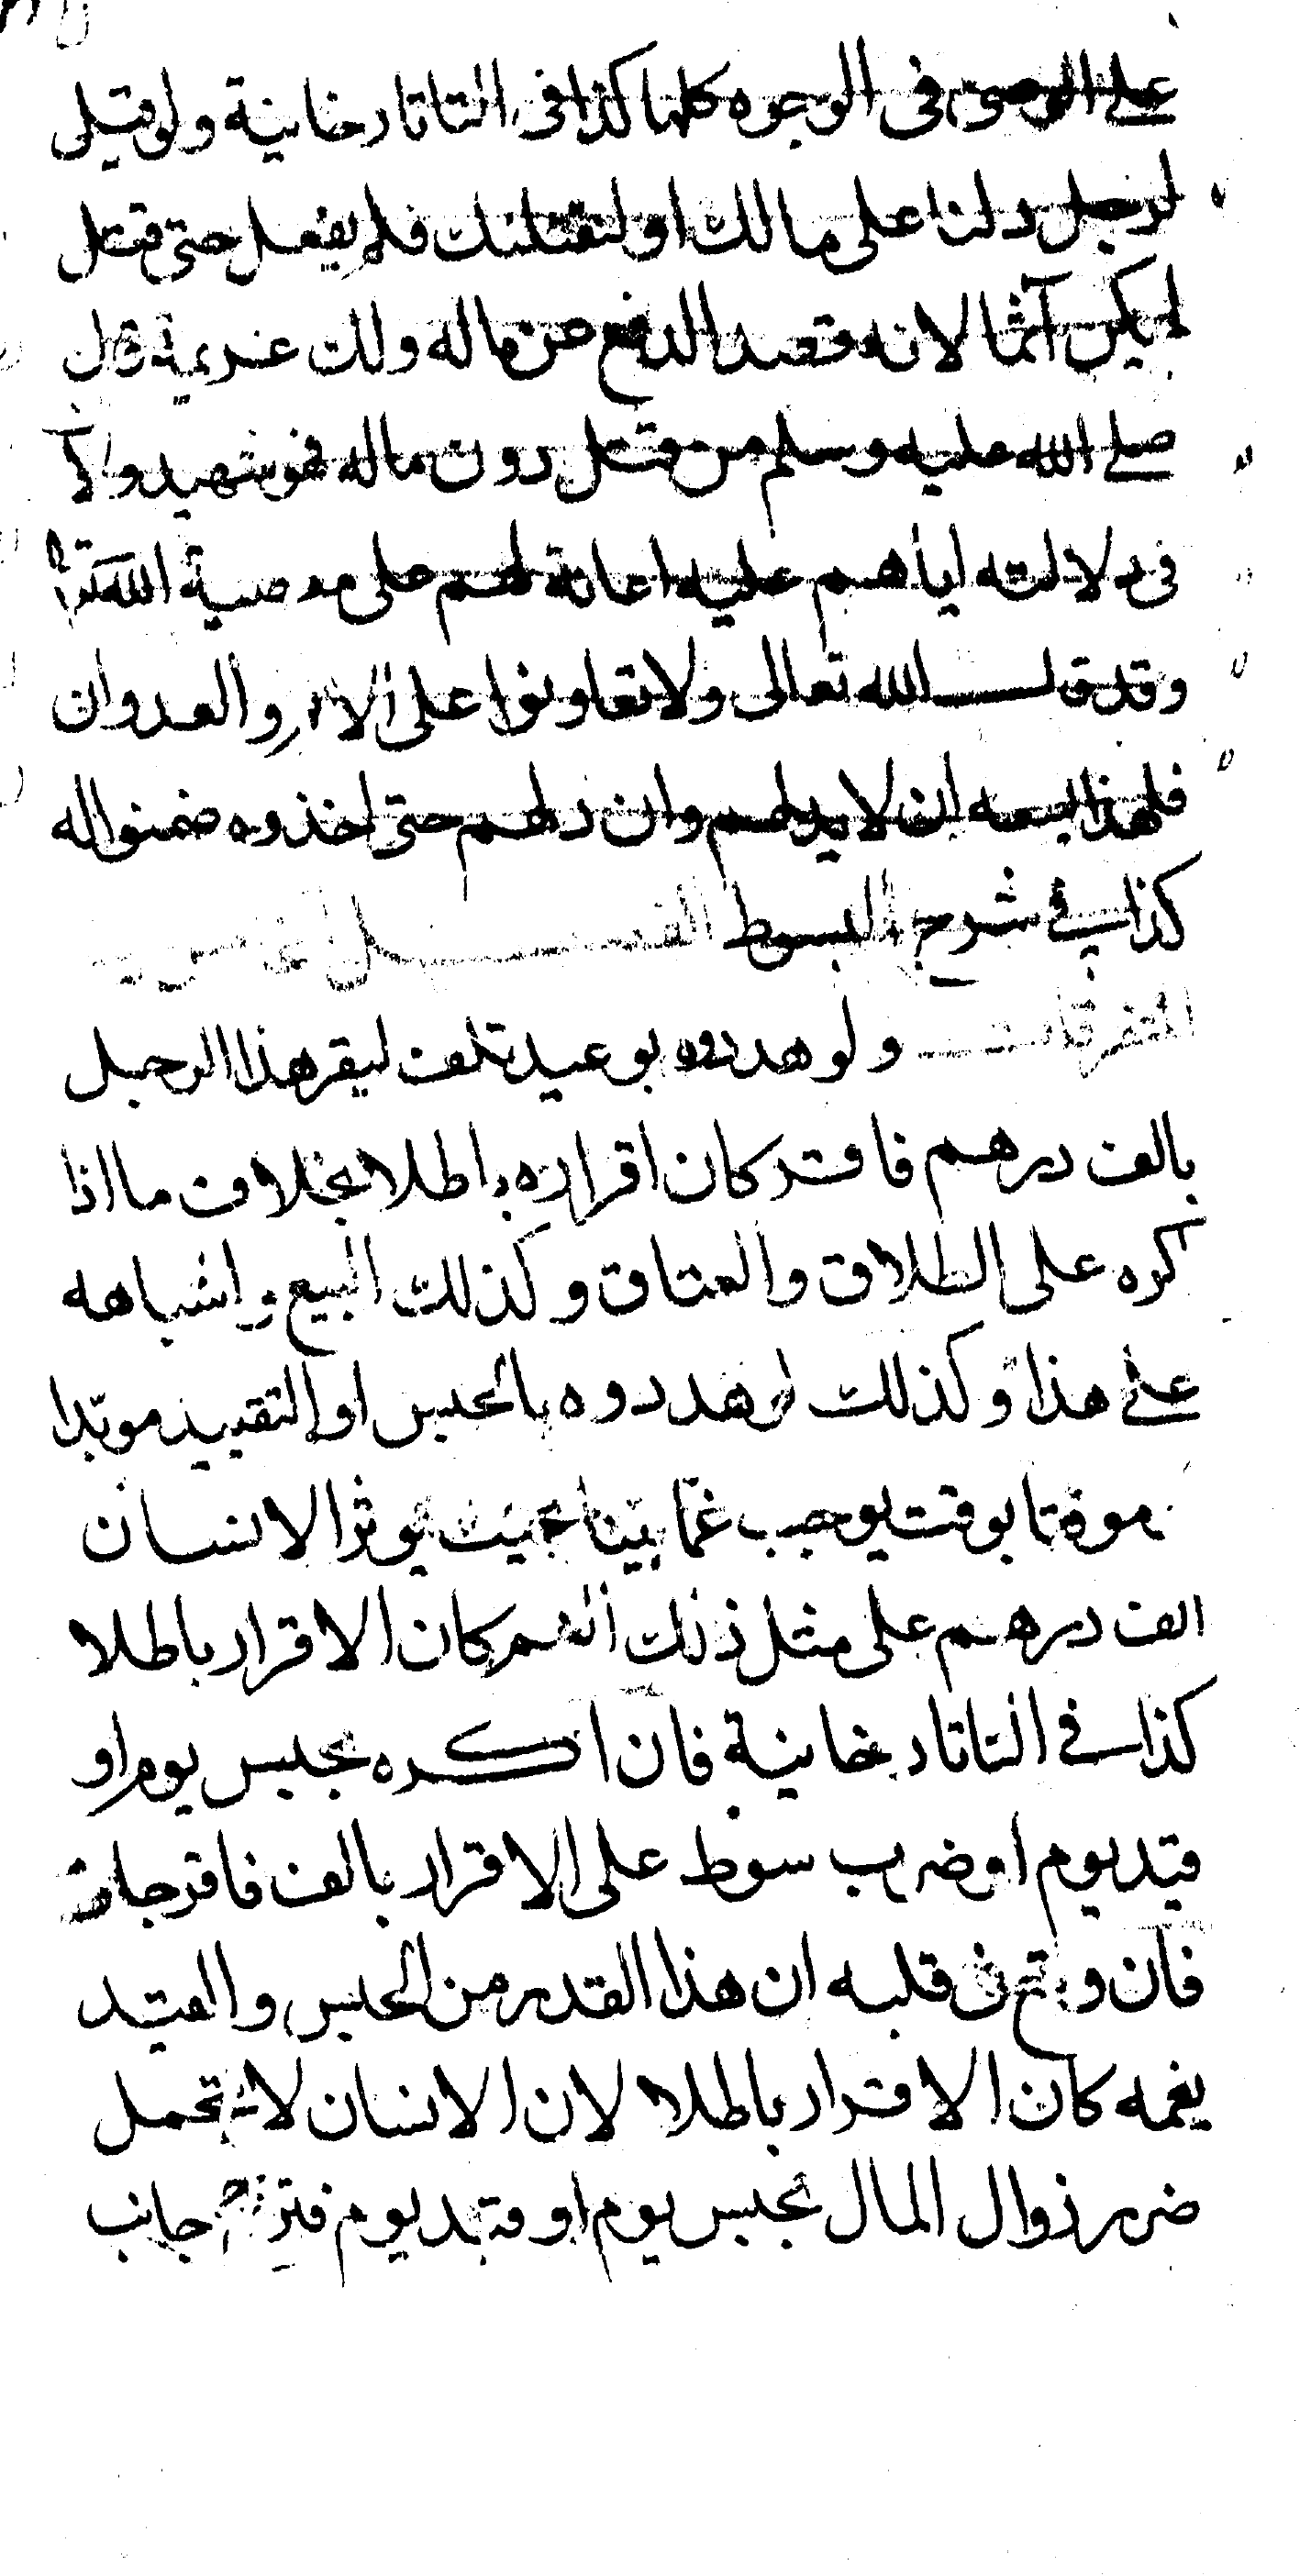 على الوصى فى الوجوه كلها كذا فى التاتارخانية ولو قيل
لرجل دلنا على مالك او لنقتلنك فلم يفعل حتى قتل
لم يكن آثما لانه قصد الدفع عن ماله وذلك عزيمة قال
صلى الله عليه وسلم من قتل دون ماله فهو شهيد ولان
فى دلالته اياهم عليه اعانة لهم على معصية الله تعالى
وقد قال الله تعالى ولا تعاونوا على الاثم والعدوان
فلهذا يسعه ان لا يدلهم وان دلهم حتى اخذوه ضمنوا له
كذا فى شرح المبسوط الفصل
المتفرقات ولو هددوه بوعيد تلف ليقر هذا الرجل
بالف درهم فاقر كان اقراره باطلا بخلاف ما اذا
اكره على الطلاق والعتاق وكذلك البيع واشباهه
على هذا وكذلك لو هددوه بالحبس او التقييد موبدا
موقتا بوقت يوجب غمّا بيّنا بحيث يوثر الانسان
الف درهم على مثل ذلك الغم كان الاقرار باطلا
كذا فى التاتارخانية فان اكره بحبس يوم او
قيد يوم او ضرب سوط على الاقرار بالف فاقر جاز
فان وقع فى قلبه ان هذا القدر من الحبس والقيد
يغمه كان الاقرار باطلا لان الانسان لا يتحمل
ضرر زوال المال بحبس يوم او قيد يوم فترجح جانب